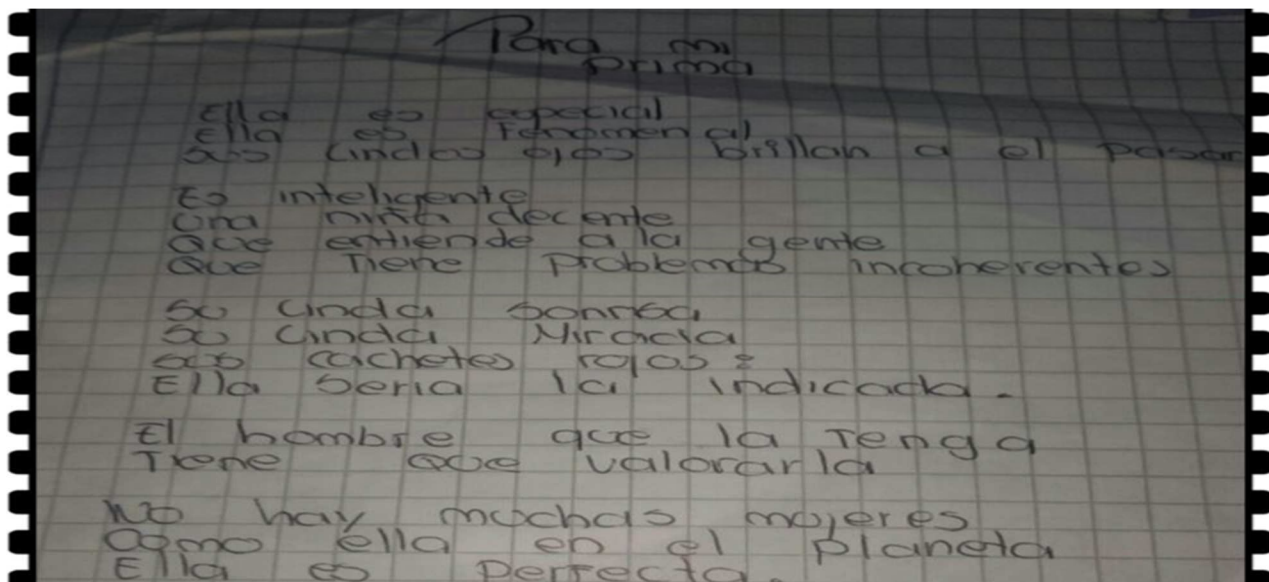 Para mi
prima
Ella es especial
Ella es Fenomenal
sus lindos ojos brillan a el pasar
Es inteligente
una niña decente
Que entiende a la gente
Que Tiene problemas incoherentes
su linda sonrisa
su linda Mirada
sus cachetes rojos:
Ella seria la indicada.
El hombre que la Tenga
Tiene que valorarla
No hay muchas mujeres
como élla en el planeta
Ella es perfecta.